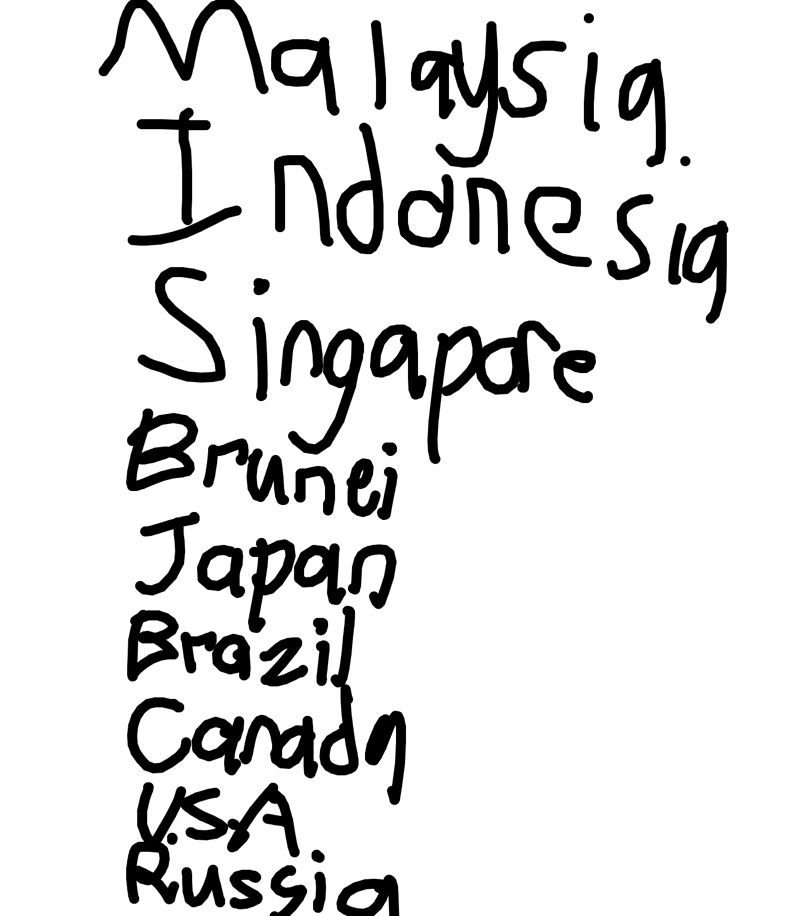 Malaysia.
Indonesia
Singapore
Brunei
Japan
Brazil
Canada
U.S.A
Russia